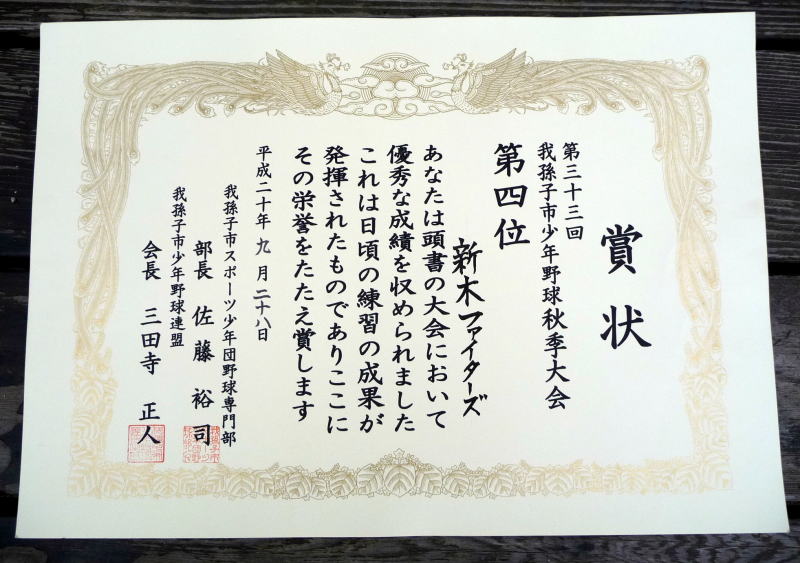 賞状
第三十三回
我孫子市少年野球秋季大会
第四位
新木ファイターズ
あなたは頭書の大会において
優秀な成績を収められました
これは日頃の練習の成果が
発揮されたものでありここに
その栄誉をたたえ賞します
平成二十年九月二十八日
我孫子市スポーツ少年団野球専門部
部長 佐藤裕司
我孫子市少年野球連盟
会長 三田寺正人